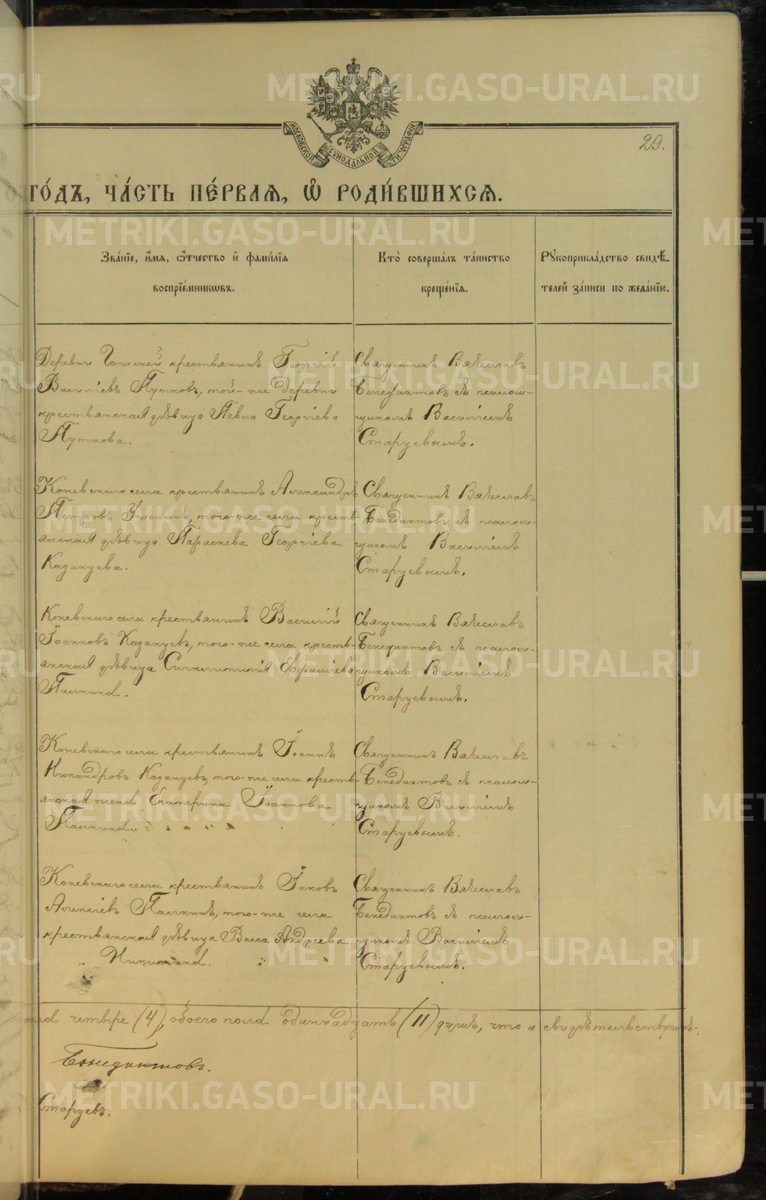 METRIKI.GASO-URAL.RU
МОСКОВСКОЙ СѴНОДАЛЬНОЙ ТИПОГРАФІИ
29.
ГО́ДЪ, ЧА́СТЬ ПЕ́РВАЯ, Ѡ҆ РОДИ́ВШИХСЯ.
Зва́нїе, и҆́мя, ѻ҆́тчество и҆ фами́лїя
воспрїе́мникѡвъ.
Кто̀ соверша́лъ та́инство
креще́нїя.
Рꙋкоприкла́дство свидѣ́-
телей за́писи по жела́нїю.
Деревни крестьянинъ Георгій
Васильевъ Путковъ, той-же деревни
крестьянская дѣвица Георгіева
Путкова.
Священникъ Вячеславъ
Бенедиктовъ съ псалом-
щикомъ Василіемъ
Старцевымъ.
Коневскаго села крестьянинъ Александръ
Петровъ того-же села кресть-
янская дѣвица Параскева Георгіева
Казанцева.
Священникъ Вячеславъ
Бенедиктовъ съ псалом-
щикомъ Василіемъ
Старцевымъ.
Коневскаго села крестьянинъ Василій
Іоанновъ Казанцевъ, того-же села кресть-
янская дѣвица
Палкина.
Священникъ Вячеславъ
Бенедиктовъ съ псалом-
щикомъ Василіемъ
Старцевымъ.
Коневскаго села крестьянинъ Іоаннъ
Никандровъ Казанцевъ, того-же села кресть-
янская жена Екатерина Іоаннова
Палкина.
Священникъ Вячеславъ
Бенедиктовъ съ псалом-
щикомъ Василіемъ
Старцевымъ.
Коневскаго села крестьянинъ Іаковъ
Алексѣевъ Палкинъ, того-же села
крестьянская дѣвица Васса Андреева
Священникъ Вячеславъ
Бенедиктовъ съ псалом-
щикомъ Василіемъ
Старцевымъ.
четыре (4), обоего пола одиннадцать (11) душъ, что и свидѣтельствуемъ.
Бенедиктовъ.
Старцевъ.